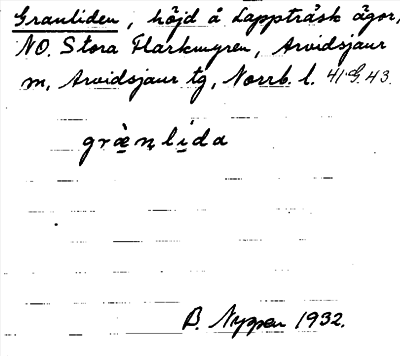 Granliden, höjd å Lappträsk ägor,
NO. Stora Flarkmyren, Arvidsjaur
m, Arvidsjaur tg, Norrb. l. 41 G. 43.
græ̀nlida
B. Nyper 1932.